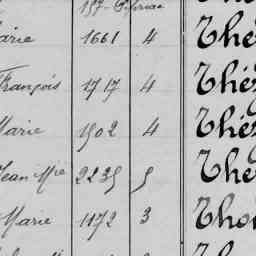 arie 1661 4 Thé
François 1717 4 Théz
Marie 1902 4 Théz
Jean Mie 2235 5 Thé
Marie 1172 3 Tho